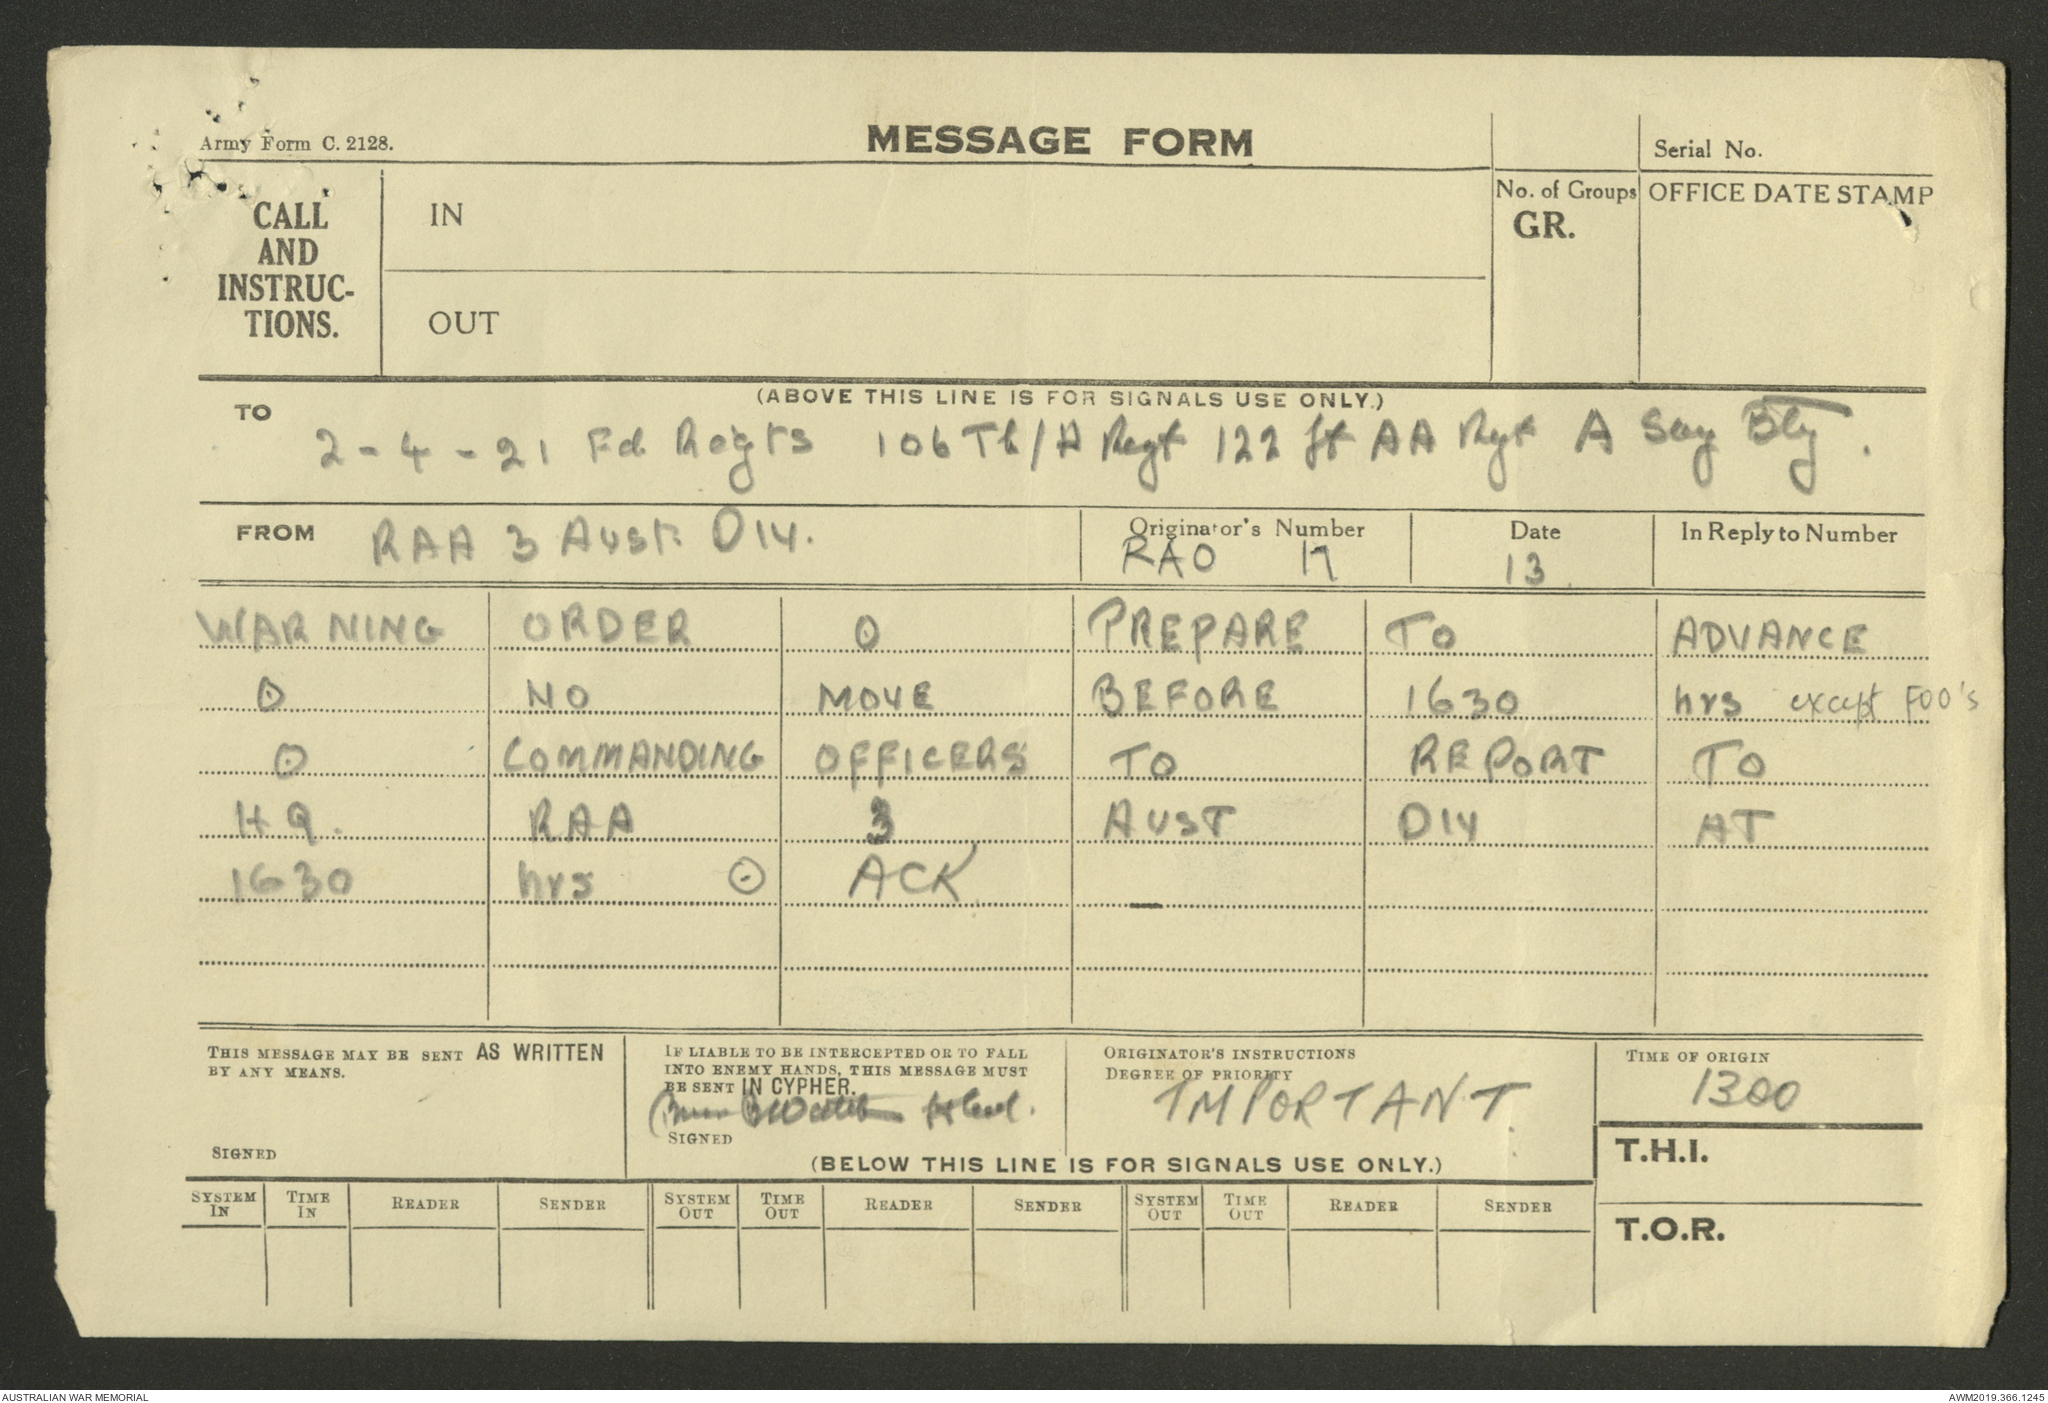 Army Form C. 2128.
MESSAGE FORM
Serial No.
CALL
AND
INSTRUC-
TIONS.
IN
OUT
No. of Groups
GR.
OFFICE DATE STAMP
(ABOVE THIS LINE IS FOR SIGNALS USE ONLY.)
TO
2-4-21 Fd Regts 106 Tk/A Regt 122 Lt AA Rgt A Svy Bty.
FROM RAA 3 Aust. DIV.
Originator's Number
RAO 17
Date
13
In Reply to Number
WARNING ORDER ⊙ PREPARE TO ADVANCE
⊙ NO MOVE BEFORE 1630 hrs except FOO's
⊙ COMMANDING OFFICERS TO REPORT TO
HQ. RAA 3 AUST DIV AT
1630 hrs ⊙ ACK
THIS MESSAGE MAY BE SENT AS WRITTEN
BY ANY MEANS.
SIGNED
IF LIABLE TO BE INTERCEPTED OR TO FALL
INTO ENEMY HANDS, THIS MESSAGE MUST
BE SENT IN CYPHER.
SIGNED
ORIGINATOR'S INSTRUCTIONS
DEGREE OF PRIORITY
IMPORTANT.
TIME OF ORIGIN
1300
T.H.I.
T.O.R.
(BELOW THIS LINE IS FOR SIGNALS USE ONLY.)
SYSTEM IN TIME IN READER SENDER SYSTEM OUT TIME OUT READER SENDER SYSTEM OUT TIME OUT READER SENDER
AUSTRALIAN WAR MEMORIAL
AWM2019.366.1245